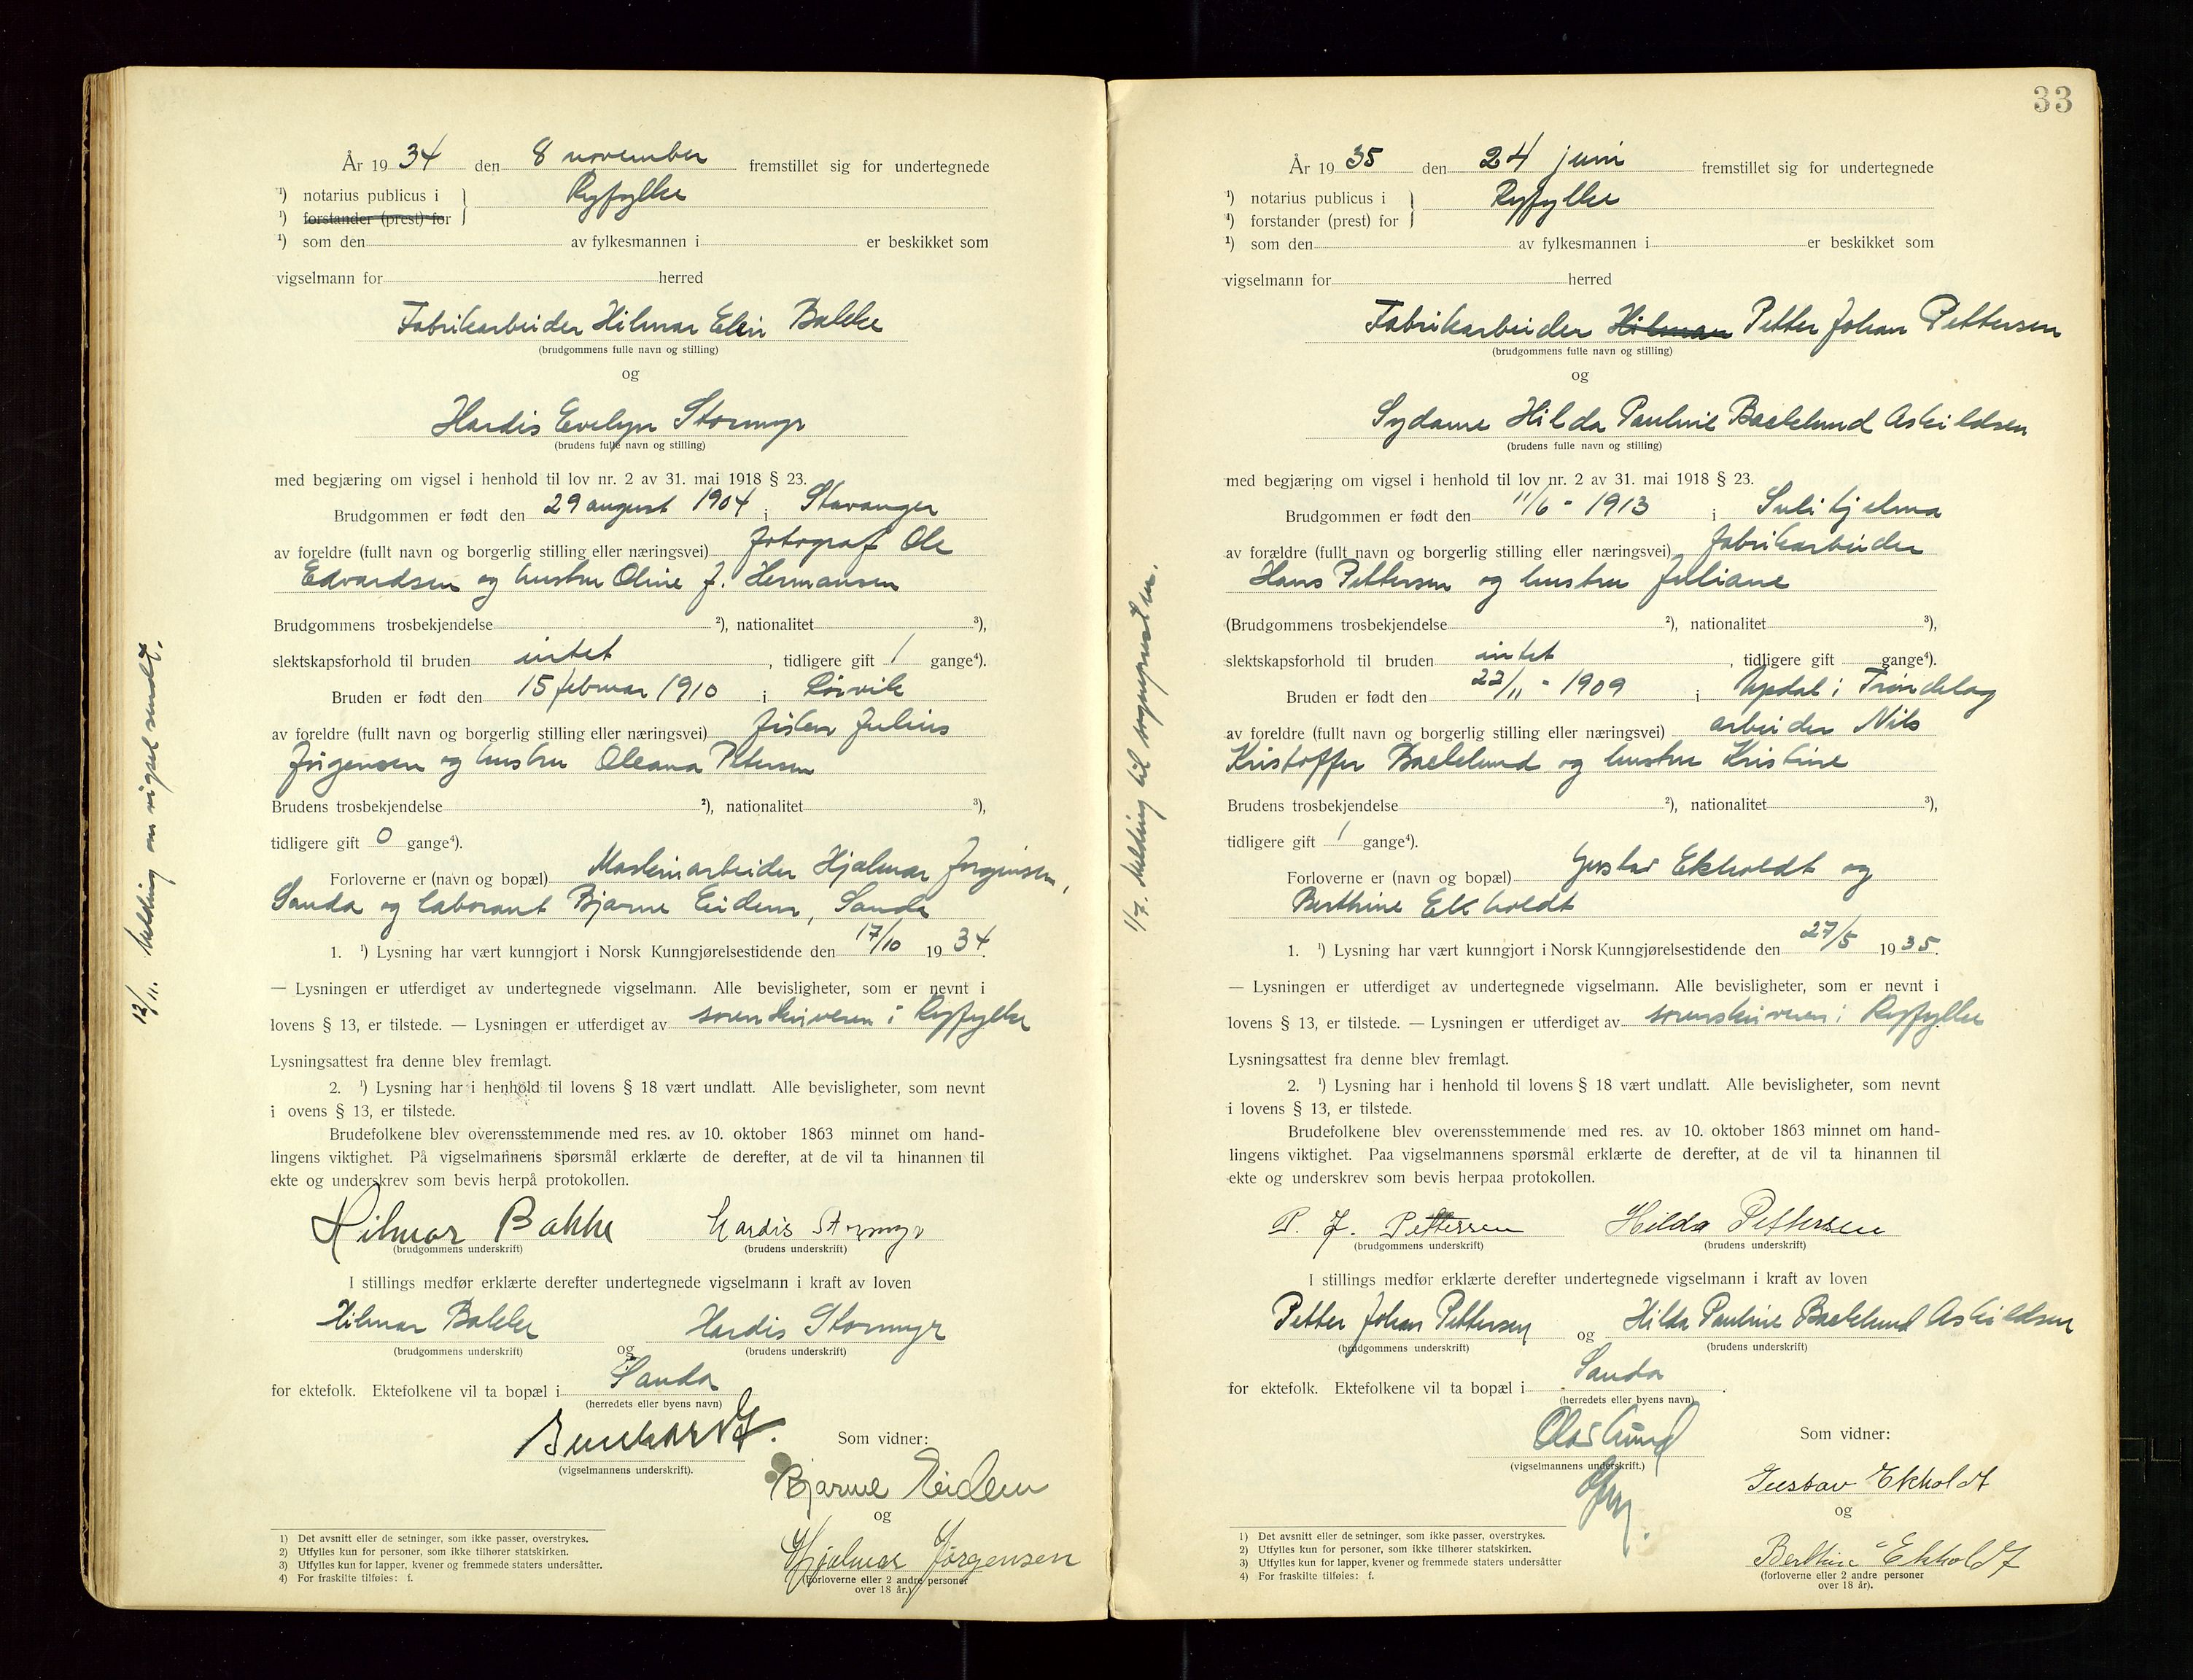 År 19 34 den 8 november fremstillet sig for undertegnede
¹) notarius publicus i Ryfylke
¹) forstander (prest) for
¹) som den av fylkesmannen i er beskikket som
vigselmann for herred
Fabrikarbeider Hilmar Elin Bakke
(brudgommens fulle navn og stilling)
og
Hardis Evelyn Stormyr
(brudens fulle navn og stilling)
med begjæring om vigsel i henhold til lov nr. 2 av 31. mai 1918 § 23.
Brudgommen er født den 29 august 1904 i Stavanger
av foreldre (fullt navn og borgerlig stilling eller næringsvei) fotograf Ole
Edvardsen og hustru Oline J. Hermansen
Brudgommens trosbekjendelse ²), nationalitet ³),
slektskapsforhold til bruden intet, tidligere gift 1 gange⁴).
Bruden er født den 15 februar 1910 i Rørvik
av foreldre (fullt navn og borgerlig stilling eller næringsvei) fisker Julius
Jørgensen og hustru Oleana Petersen
Brudens trosbekjendelse ²), nationalitet ³),
tidligere gift 0 gange⁴).
Forloverne er (navn og bopæl) Maskinarbeider Hjalmar Jorgensen,
Sauda og laborant Bjarne Eidem, Sauda
1. ¹) Lysning har vært kunngjort i Norsk Kunngjørelsestidende den 17/10 19 34.
— Lysningen er utferdiget av undertegnede vigselmann. Alle bevisligheter, som er nevnt i
lovens § 13, er tilstede. — Lysningen er utferdiget av sorenskriveren i Ryfylke
Lysningsattest fra denne blev fremlagt.
2. ¹) Lysning har i henhold til lovens § 18 vært undlatt. Alle bevisligheter, som nevnt
i ovens § 13, er tilstede.
Brudefolkene blev overensstemmende med res. av 10. oktober 1863 minnet om hand-
lingens viktighet. På vigselmannens spørsmål erklærte de derefter, at de vil ta hinannen til
ekte og underskrev som bevis herpå protokollen.
Hilmar Bakke Hardis Stormyr
(brudgommens underskrift) (brudens underskrift)
I stillings medfør erklærte derefter undertegnede vigselmann i kraft av loven
Hilmar Bakke Hardis Stormyr
(brudgommens underskrift) og (brudens underskrift)
for ektefolk. Ektefolkene vil ta bopæl i Sauda
(herredets eller byens navn)
Som vidner:
(vigselmannens underskrift).
Bjarne Eidem
og
Hjalmar Jørgensen
(Forloverne eller 2 andre personer
over 18 år.)
1) Det avsnitt eller de setninger, som ikke passer, overstrykes.
2) Utfylles kun for personer, som ikke tilhører statskirken.
3) Utfylles kun for lapper, kvener og fremmede staters undersåtter.
4) For fraskilte tilføies: f.
12/11. Melding om vigsel sendt.
33
År 19 35 den 24 juni fremstillet sig for undertegnede
¹) notarius publicus i Ryfylke
¹) forstander (prest) for
¹) som den av fylkesmannen i er beskikket som
vigselmann for herred
Fabrikarbeider Hilmar Petter Johan Pettersen
(brudgommens fulle navn og stilling)
og
Sydame Hilda Pauline Baeklund Askildsen
(brudens fulle navn og stilling)
med begjæring om vigsel i henhold til lov nr. 2 av 31. mai 1918 § 23.
Brudgommen er født den 11/6 - 1913 i Sulitjelma
av forældre (fullt navn og borgerlig stilling eller næringsvei) fabrikarbeider
Hans Pettersen og hustru Juliane
(Brudgommens trosbekjendelse ²), nationalitet ³),
slektskapsforhold til bruden intet, tidligere gift gange⁴).
Bruden er født den 22/11 - 1909 i Opdal i Trøndelag
av foreldre (fullt navn og borgerlig stilling eller næringsvei) arbeider Nils
Kristoffer Baeklund og hustru Kristine
Brudens trosbekjendelse ²), nationalitet ³),
tidligere gift 1 gange⁴).
Forloverne er (navn og bopæl) Gustav Ekholdt og
Berthine Ekholdt
1. ¹) Lysning har vært kunngjort i Norsk Kunngjørelsestidende den 27/5 19 35.
— Lysningen er utferdiget av undertegnede vigselmann. Alle bevisligheter, som er nevnt i
lovens § 13, er tilstede. — Lysningen er utferdiget av sorenskriveren i Ryfylke
Lysningsattest fra denne blev fremlagt.
2. ¹) Lysning har i henhold til lovens § 18 vært undlatt. Alle bevisligheter, som nevnt
i lovens § 13, er tilstede.
Brudefolkene blev overensstemmende med res. av 10. oktober 1863 minnet om hand-
lingens viktighet. Paa vigselmannens spørsmål erklærte de derefter, at de vil ta hinannen til
ekte og underskrev som bevis herpaa protokollen.
P. J. Pettersen Hilda Pettersen
(brudgommens underskrift) (brudens underskrift)
I stillings medfør erklærte derefter undertegnede vigselmann i kraft av loven
Petter Johan Pettersen og Hilda Pauline Baeklund Askildsen
(brudgommens underskrift) (brudens underskrift)
for ektefolk. Ektefolkene vil ta bopæl i Sauda
(herredets eller byens navn)
Som vidner:
(vigselmannens underskrift.)
Gustav Ekholdt
og
Berthine Ekholdt
(forloverne eller 2 andre personer
over 18 år).
1) Det avsnitt eller de setninger, som ikke passer, overstrykes.
2) Utfylles kun for personer, som ikke tilhører statskirken.
3) Utfylles kun for lapper, kvener og fremmede staters undersåtter
4) For fraskilte tilføies: f.
1/7. Melding til sogneprest en.